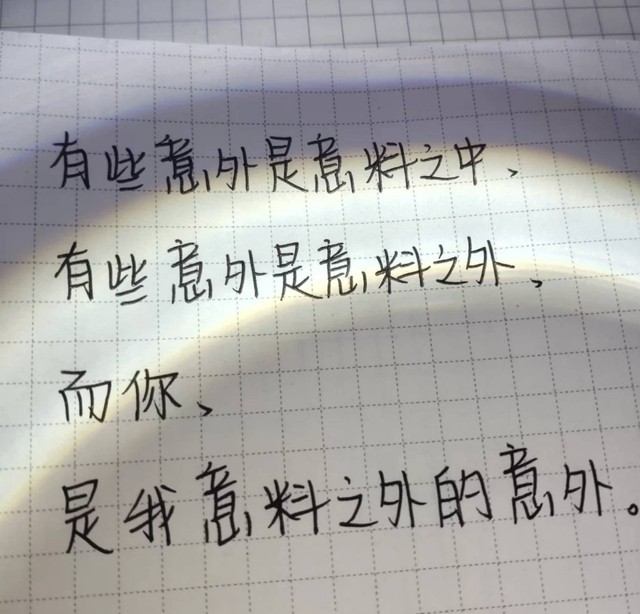 有些意外是意料之中、
有些意外是意料之外、
而你、
是我意料之外的意外。